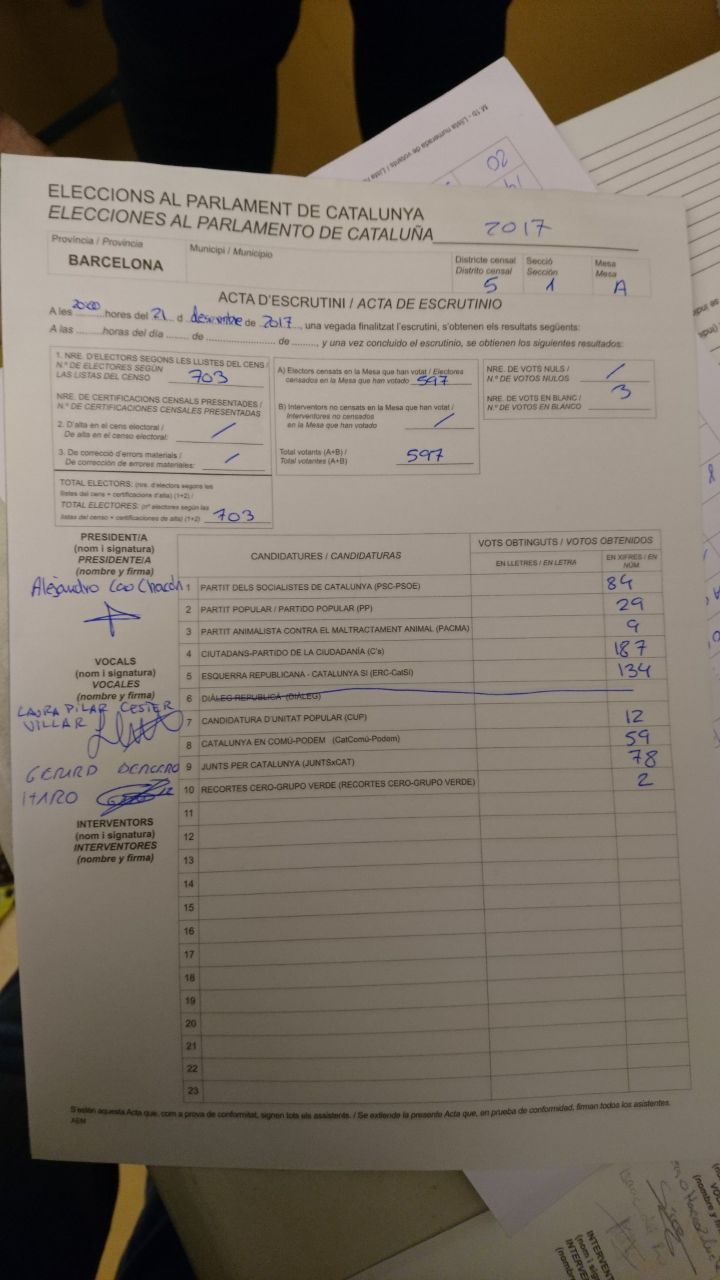 M.1b - Llista numerada de votants / Lista
02
ELECCIONS AL PARLAMENT DE CATALUNYA
ELECCIONES AL PARLAMENTO DE CATALUÑA 2017
Província / Provincia
BARCELONA
Municipi / Municipio
Districte censal
Distrito censal
5
Secció
Sección
1
Mesa
Mesa
A
ACTA D'ESCRUTINI / ACTA DE ESCRUTINIO
A les 2000 hores del 21 d desembre de 2017, una vegada finalitzat l'escrutini, s'obtenen els resultats següents:
A las ......... horas del día ........ de ........................ de ........., y una vez concluido el escrutinio, se obtienen los siguientes resultados:
1. NRE. D'ELECTORS SEGONS LES LLISTES DEL CENS /
N.º DE ELECTORES SEGÚN
LAS LISTAS DEL CENSO 703
NRE. DE CERTIFICACIONS CENSALS PRESENTADES /
N.º DE CERTIFICACIONES CENSALES PRESENTADAS
2. D'alta en el cens electoral /
De alta en el censo electoral: /
3. De correcció d'errors materials /
De corrección de errores materiales: /
TOTAL ELECTORS: (nre. d'electors segons les
llistes del cens + certificacions d'alta) (1+2) /
TOTAL ELECTORES: (nº electores según las
listas del censo + certificaciones de alta) (1+2) 703
A) Electors censats en la Mesa que han votat / Electores
censados en la Mesa que han votado 597
B) Interventors no censats en la Mesa que han votat /
Interventores no censados
en la Mesa que han votado /
Total votants (A+B) /
Total votantes (A+B) 597
NRE. DE VOTS NULS /
N.º DE VOTOS NULOS /
NRE. DE VOTS EN BLANC /
N.º DE VOTOS EN BLANCO 3
PRESIDENT/A
(nom i signatura)
PRESIDENTE/A
(nombre y firma)
Alejandro Cao Chacón
VOCALS
(nom i signatura)
VOCALES
(nombre y firma)
LAURA PILAR
VILLAR
HARO
INTERVENTORS
(nom i signatura)
INTERVENTORES
(nombre y firma)
CANDIDATURES / CANDIDATURAS
VOTS OBTINGUTS / VOTOS OBTENIDOS
EN LLETRES / EN LETRA
EN XIFRES / EN NÚM.
1 PARTIT DELS SOCIALISTES DE CATALUNYA (PSC-PSOE) 84
2 PARTIT POPULAR / PARTIDO POPULAR (PP) 29
3 PARTIT ANIMALISTA CONTRA EL MALTRACTAMENT ANIMAL (PACMA) 9
4 CIUTADANS-PARTIDO DE LA CIUDADANÍA (C's) 187
5 ESQUERRA REPUBLICANA - CATALUNYA SÍ (ERC-CatSí) 134
6 DIÀLEG REPUBLICÀ (DIÀLEG)
7 CANDIDATURA D'UNITAT POPULAR (CUP) 12
8 CATALUNYA EN COMÚ-PODEM (CatComú-Podem) 59
9 JUNTS PER CATALUNYA (JUNTSxCAT) 78
10 RECORTES CERO-GRUPO VERDE (RECORTES CERO-GRUPO VERDE) 2
11
12
13
14
15
16
17
18
19
20
21
22
23
S'estén aquesta Acta que, com a prova de conformitat, signen tots els assistents. / Se extiende la presente Acta que, en prueba de conformidad, firman todos los asistentes.
AEM